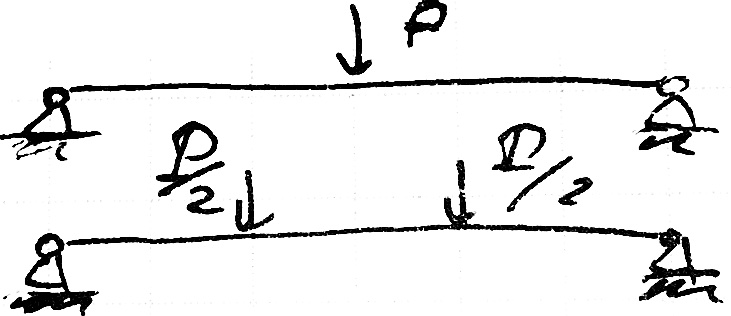 P
P/2 P/2